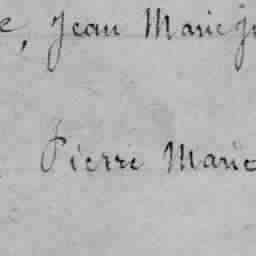 e, Jean Marie
Pierre Marie